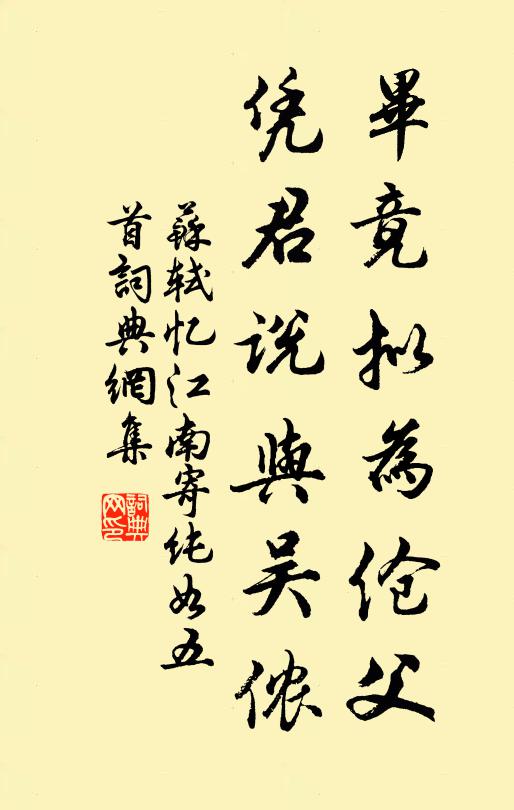 畢竟拟為伧父
凭君説與吴侬
蘇轼忆江南寄纯如五
首詞典網集
詞典网印